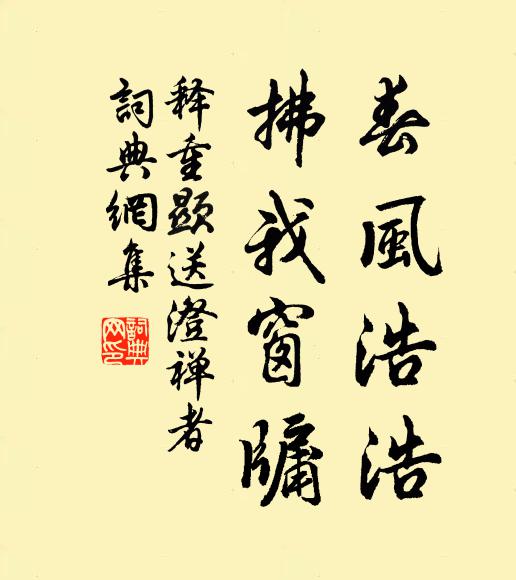 春風浩浩
拂我窗牖
释重顯送澄禅者
詞典網集
詞典
网印